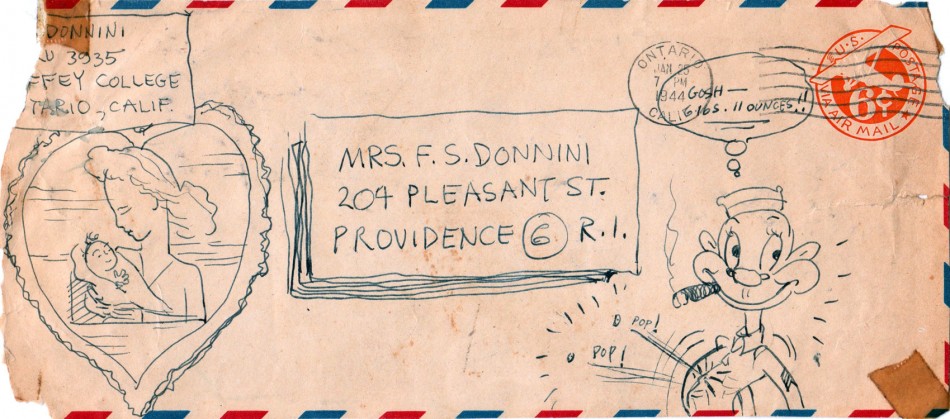 DONNINI
3935
FFEY COLLEGE
TARIO, CALIF.
ONTARIO
JAN 25
7 PM
1944
CALIF
GOSH—
6 lbs. 11 OUNCES!!
U.S. POSTAGE
6¢
VIA AIR MAIL
MRS. F. S. DONNINI
204 PLEASANT ST.
PROVIDENCE 6 R.I.
POP!
POP!